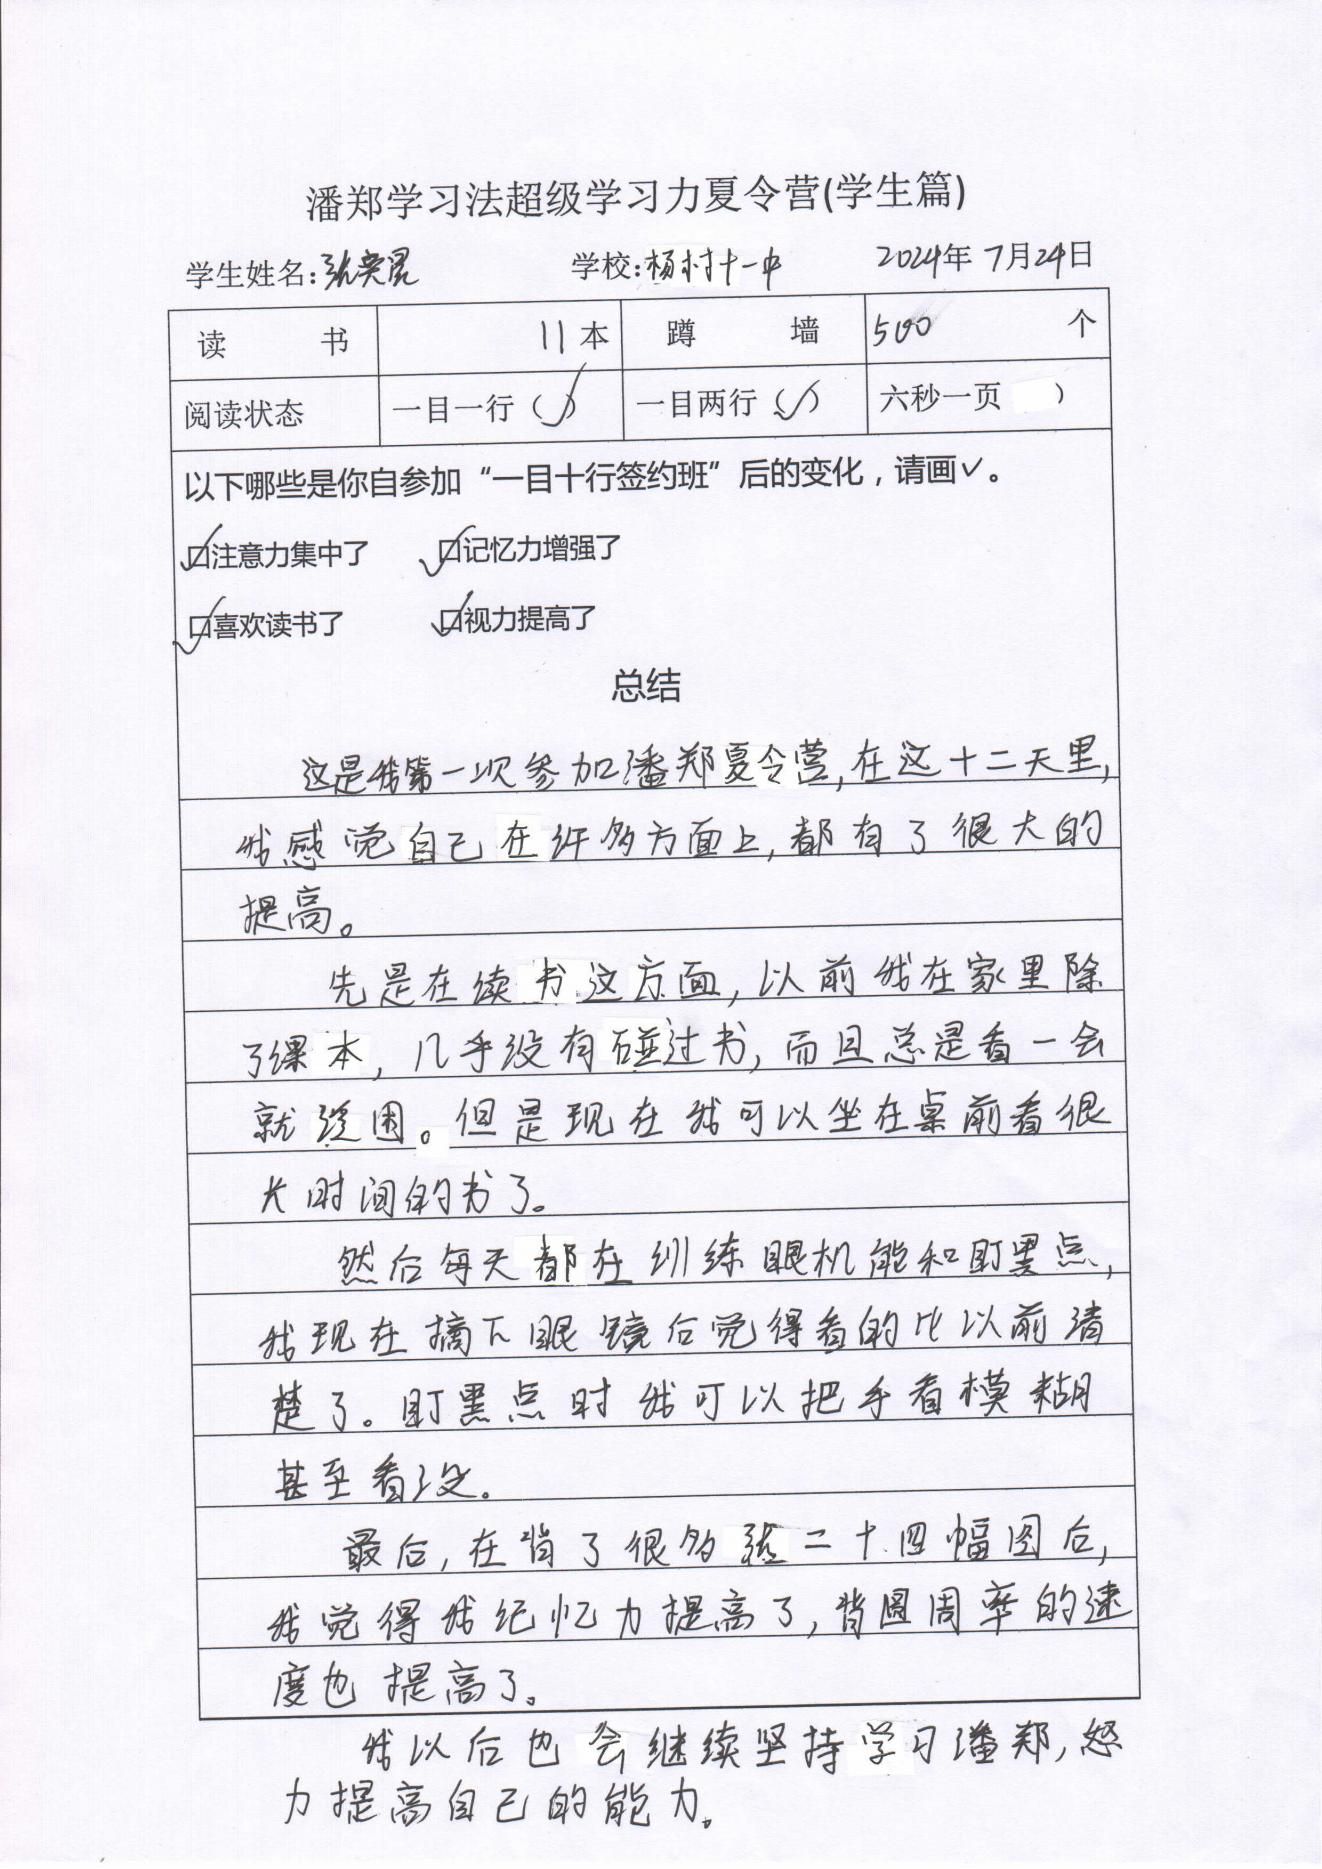 潘郑学习法超级学习力夏令营(学生篇)
学生姓名:张奕昆 学校:杨村十一中 2024年7月24日
读 书 11本 蹲 墙 500 个
阅读状态 一目一行(✓) 一目两行(✓) 六秒一页 )
以下哪些是你自参加“一目十行签约班”后的变化，请画✓。
☑注意力集中了 ☑记忆力增强了
☑喜欢读书了 ☑视力提高了
总结
这是我第一次参加潘郑夏令营,在这十二天里,
我感觉自己在许多方面上,都有了很大的
提高。
先是在读书这方面,以前我在家里除
了课本,几乎没有碰过书,而且总是看一会
就没困。但是现在我可以坐在桌前看很
长时间的书了。
然后每天都在训练眼机能和盯黑点,
我现在摘下眼镜后觉得看的比以前清
楚了。盯黑点时我可以把手看模糊
甚至看没。
最后,在背了很多张二十四幅图后,
我觉得我记忆力提高了,背圆周率的速
度也提高了。
我以后也会继续坚持学习潘郑,怒
力提高自己的能力。